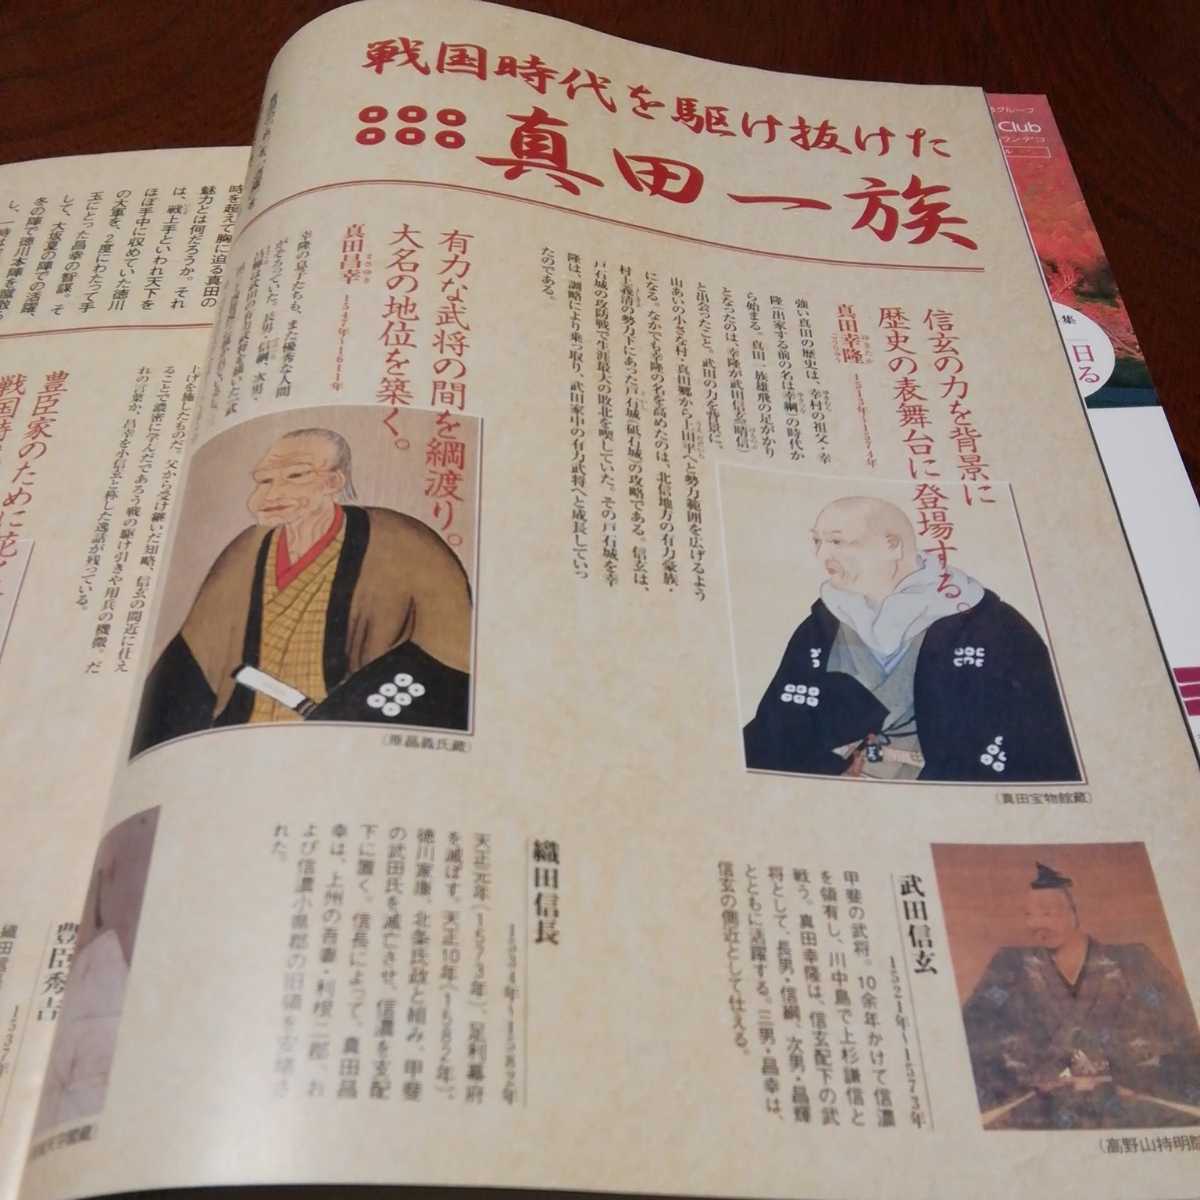 戦国時代を駆け抜けた
真田一族
信玄の力を背景に
歴史の表舞台に登場する。
真田幸隆
1513年〜1574年
強い真田の歴史は、幸村の祖父・幸
隆(出家する前の名は幸綱)の時代か
ら始まる。真田一族雄飛の足がかり
となったのは、幸隆が武田信玄(晴信)
と出会ったこと。武田の力を背景に、
山あいの小さな村・真田郷から上田平へと勢力範囲を広げるよう
になる。なかでも幸隆の名を高めたのは、北信地方の有力豪族・
村上義清の勢力下にあった戸石城(砥石城)の攻略である。信玄は、
戸石城の攻防戦で生涯最大の敗北を喫していた。その戸石城を幸
隆は、調略により乗っ取り、武田家中の有力武将へと成長していっ
たのである。
(真田宝物館蔵)
有力な武将の間を綱渡り。
大名の地位を築く。
真田昌幸
まさゆき
1547年〜1611年
幸隆の息子たちも、また優秀な人間
がそろっていた。長男・信綱、次男・
しげを施したものだ。父から受け継いだ知略、信玄の間近に仕え
ることで濃密に学んだであろう戦の駆け引きや用兵の機微。だ
れの言葉か、昌幸を小信玄と称した逸話が残っている。
(原昌義氏蔵)
武田信玄
1521年〜1573年
甲斐の武将。10余年かけて信濃
を領有し、川中島で上杉謙信と
戦う。真田幸隆は、信玄配下の武
将として、長男・信綱、次男・昌輝
とともに活躍する。三男・昌幸は、
信玄の側近として仕える。
(高野山持明院
織田信長
1534年〜1582年
天正元年(1573年)、足利幕府
を滅ぼす。天正10年(1582年)、
徳川家康、北条氏政と組み、甲斐
の武田氏を滅亡させ、信濃を支配
下に置く。信長によって、真田昌
幸は、上州の吾妻・利根二郡、お
よび信濃小県郡の旧領を安堵さ
れた。
時を超えて胸に迫る真田の
魅力とは何だろうか。それ
は、戦上手といわれ天下を
ほぼ手中に収めていた徳川
の大軍を、2度にわたって手
玉にとった昌幸の智謀。そ
して、大坂夏の陣での活躍、
冬の陣で徳川本陣を蹴散ら
し、一時は
豊臣家のために花
戦国時
豊臣秀吉
1537年
Club
集